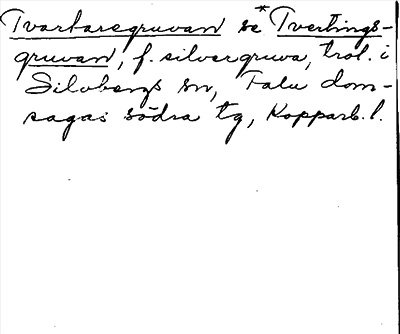 Tvartaregruvan se *Tvertings-
gruvan, f. silvergruva, trol. i
Silvbergs sn, Falu dom-
sagas södra tg, Kopparb. l.